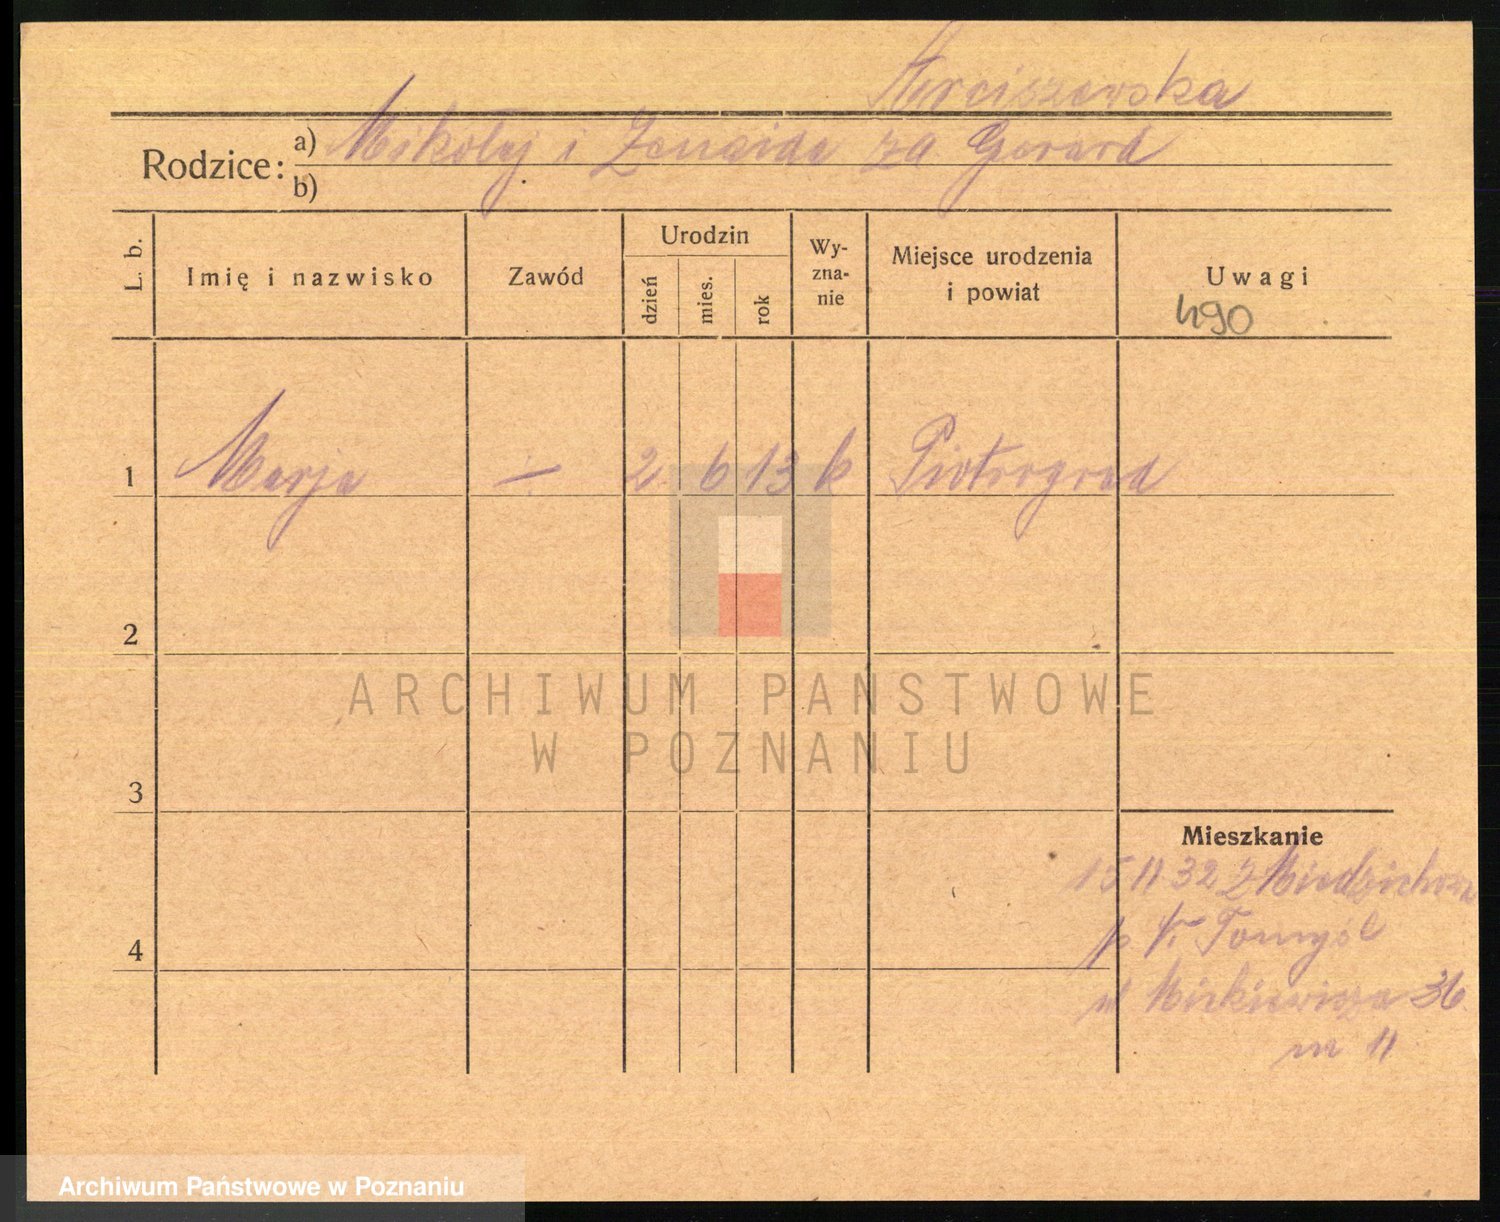 Mikołaj i Zenaida za Gerard
Rodzice: a)
b)
L. b.
Imię i nazwisko
Zawód
Urodzin
dzień
mies.
rok
Wy-
zna-
nie
Miejsce urodzenia
i powiat
Uwagi
490
1 Marja — 2 6 13 k Piotrograd
2
3
4
Mieszkanie
15 11 32 z
p. Tomyśl
ul Mickiewicza 36
m 11
ARCHIWUM PAŃSTWOWE
W POZNANIU
Archiwum Państwowe w Poznaniu